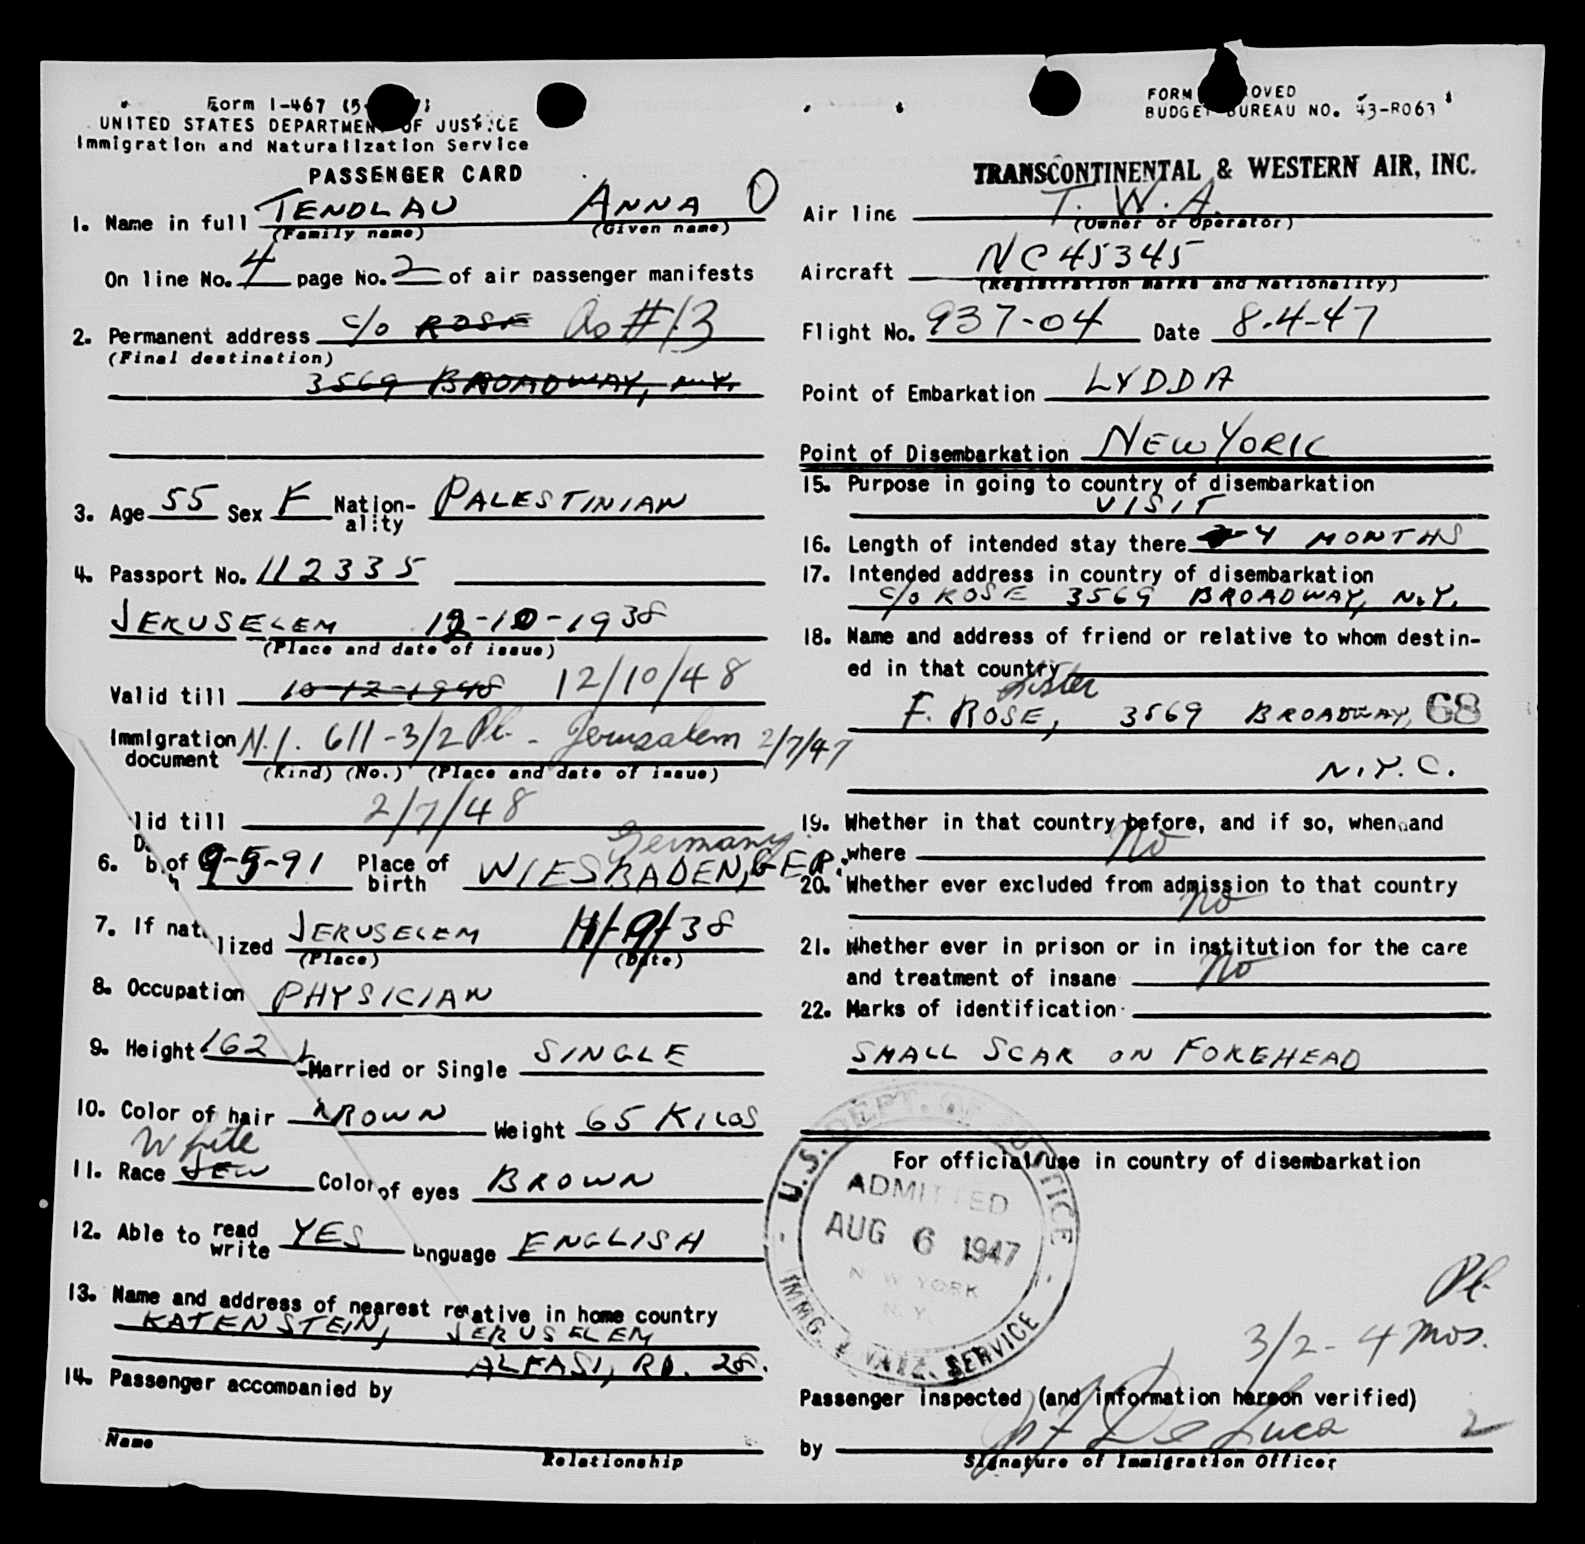 Form I-467 (5-
UNITED STATES DEPARTMENT OF JUSTICE
Immigration and Naturalization Service
PASSENGER CARD
1. Name in full TENDLAU ANNA O
(Family name) (Given name)
On line No. 4 page No. 2 of air passenger manifests
2. Permanent address c/o ROSE #13
(Final destination)
3569 BROADWAY, N.Y.
3. Age 55 Sex F Nation-ality PALESTINIAN
4. Passport No. 112335
JERUSELEM 12-10-1938
(Place and date of issue)
Valid till 10-12-1948 12/10/48
Immigration document N.I. 611-3/2 Pl. - Jerusalem 2/7/47
(Kind) (No.) (Place and date of issue)
lid till 2/7/48
Germany
6. of 9-5-91 Place of birth WIESBADEN, GER.
7. If nat lized JERUSELEM 38
(Place) (Date)
8. Occupation PHYSICIAN
9. Height 162 Married or Single SINGLE
10. Color of hair BROWN Weight 65 KILOS
White
11. Race JEW Color of eyes BROWN
12. Able to read write YES anguage ENGLISH
13. Name and address of nearest relative in home country
KATENSTEIN, JERUSELEM
ALFASI, RD. 28.
14. Passenger accompanied by
Name Relationship
FORM OVED
BUDGET BUREAU NO. 43-R063
TRANSCONTINENTAL & WESTERN AIR, INC.
Air line T. W. A.
(Owner or Operator)
Aircraft NC 45345
(Registration marks and Nationality)
Flight No. 937-04 Date 8-4-47
Point of Embarkation LYDDA
Point of Disembarkation NEW YORK
15. Purpose in going to country of disembarkation
VISIT
16. Length of intended stay there 4 MONTHS
17. Intended address in country of disembarkation
c/o ROSE 3569 BROADWAY, N.Y.
18. Name and address of friend or relative to whom destin-
ed in that country
sister
F. ROSE, 3569 BROADWAY, 68
N.Y.C.
19. Whether in that country before, and if so, when and
where No
20. Whether ever excluded from admission to that country
No
21. Whether ever in prison or in institution for the care
and treatment of insane No
22. Marks of identification
SMALL SCAR ON FOREHEAD
For official use in country of disembarkation
U.S. DEPT. OF JUSTICE
ADMITTED
AUG 6 1947
NEW YORK
N.Y.
IMMG. & NATZ. SERVICE
Pl.
3/2 - 4 mos.
Passenger inspected (and information hereon verified)
by De Luca 2
Signature of Immigration Officer